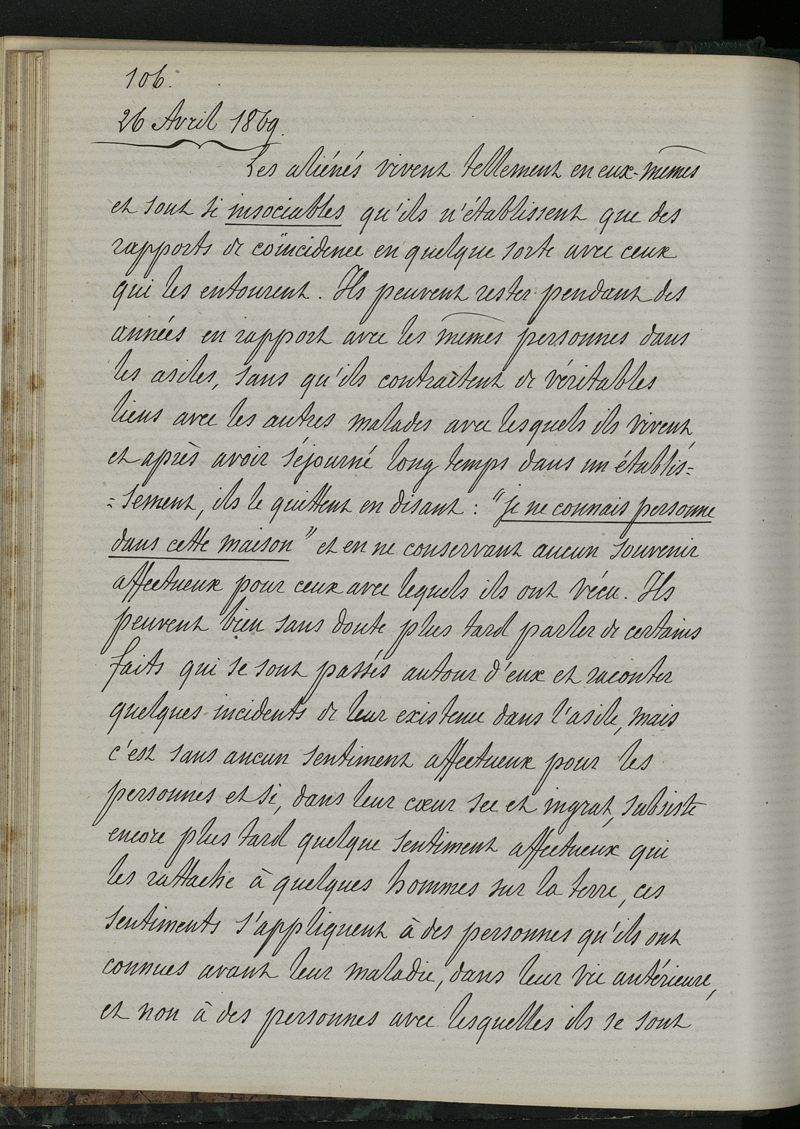 106.
26 Avril 1869.
Les aliénés vivent tellement en eux-mêmes
et sont si insociables qu'ils n'établissent que des
rapports de coïncidence en quelque sorte avec ceux
qui les entourent. Ils peuvent rester pendant des
années en rapport avec les mêmes personnes dans
les asiles, sans qu'ils contractent de véritables
liens avec les autres malades avec lesquels ils vivent,
et après avoir séjourné long temps dans un établis=
=sement, ils le quittent en disant : "je ne connais personne
dans cette maison" et en ne conservant aucun souvenir
affectueux pour ceux avec lequels ils ont vécu. Ils
peuvent bien sans doute plus tard parler de certains
faits qui se sont passés autour d'eux et raconter
quelques incidents de leur existence dans l'asile, mais
c'est sans aucun sentiment affectueux pour les
personnes et si, dans leur cœur sec et ingrat, subsiste
encore plus tard quelque sentiment affectueux qui
les rattache à quelques hommes sur la terre, ces
sentiments s'appliquent à des personnes qu'ils ont
connues avant leur maladie, dans leur vie antérieure,
et non à des personnes avec lesquelles ils se sont